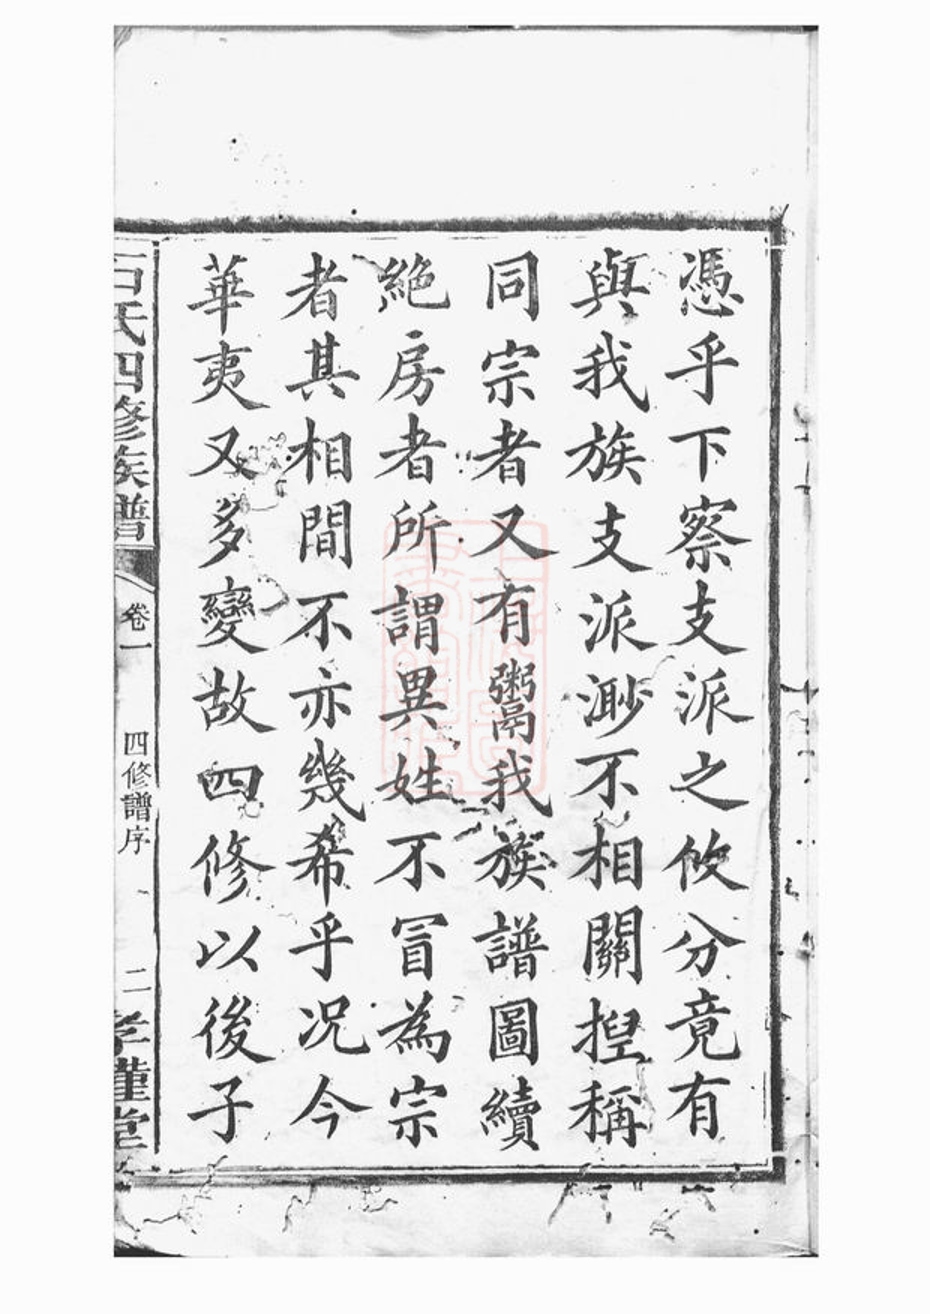 憑乎下察支派之攸分竟有
與我族支派渺不相關揑稱
同宗者又有鬻我族譜圖續
絶房者所謂異姓不冐為宗
者其相間不亦幾希乎况今
華夷又多變故四修以後子
石氏四修族譜
卷一
四修譜序
二